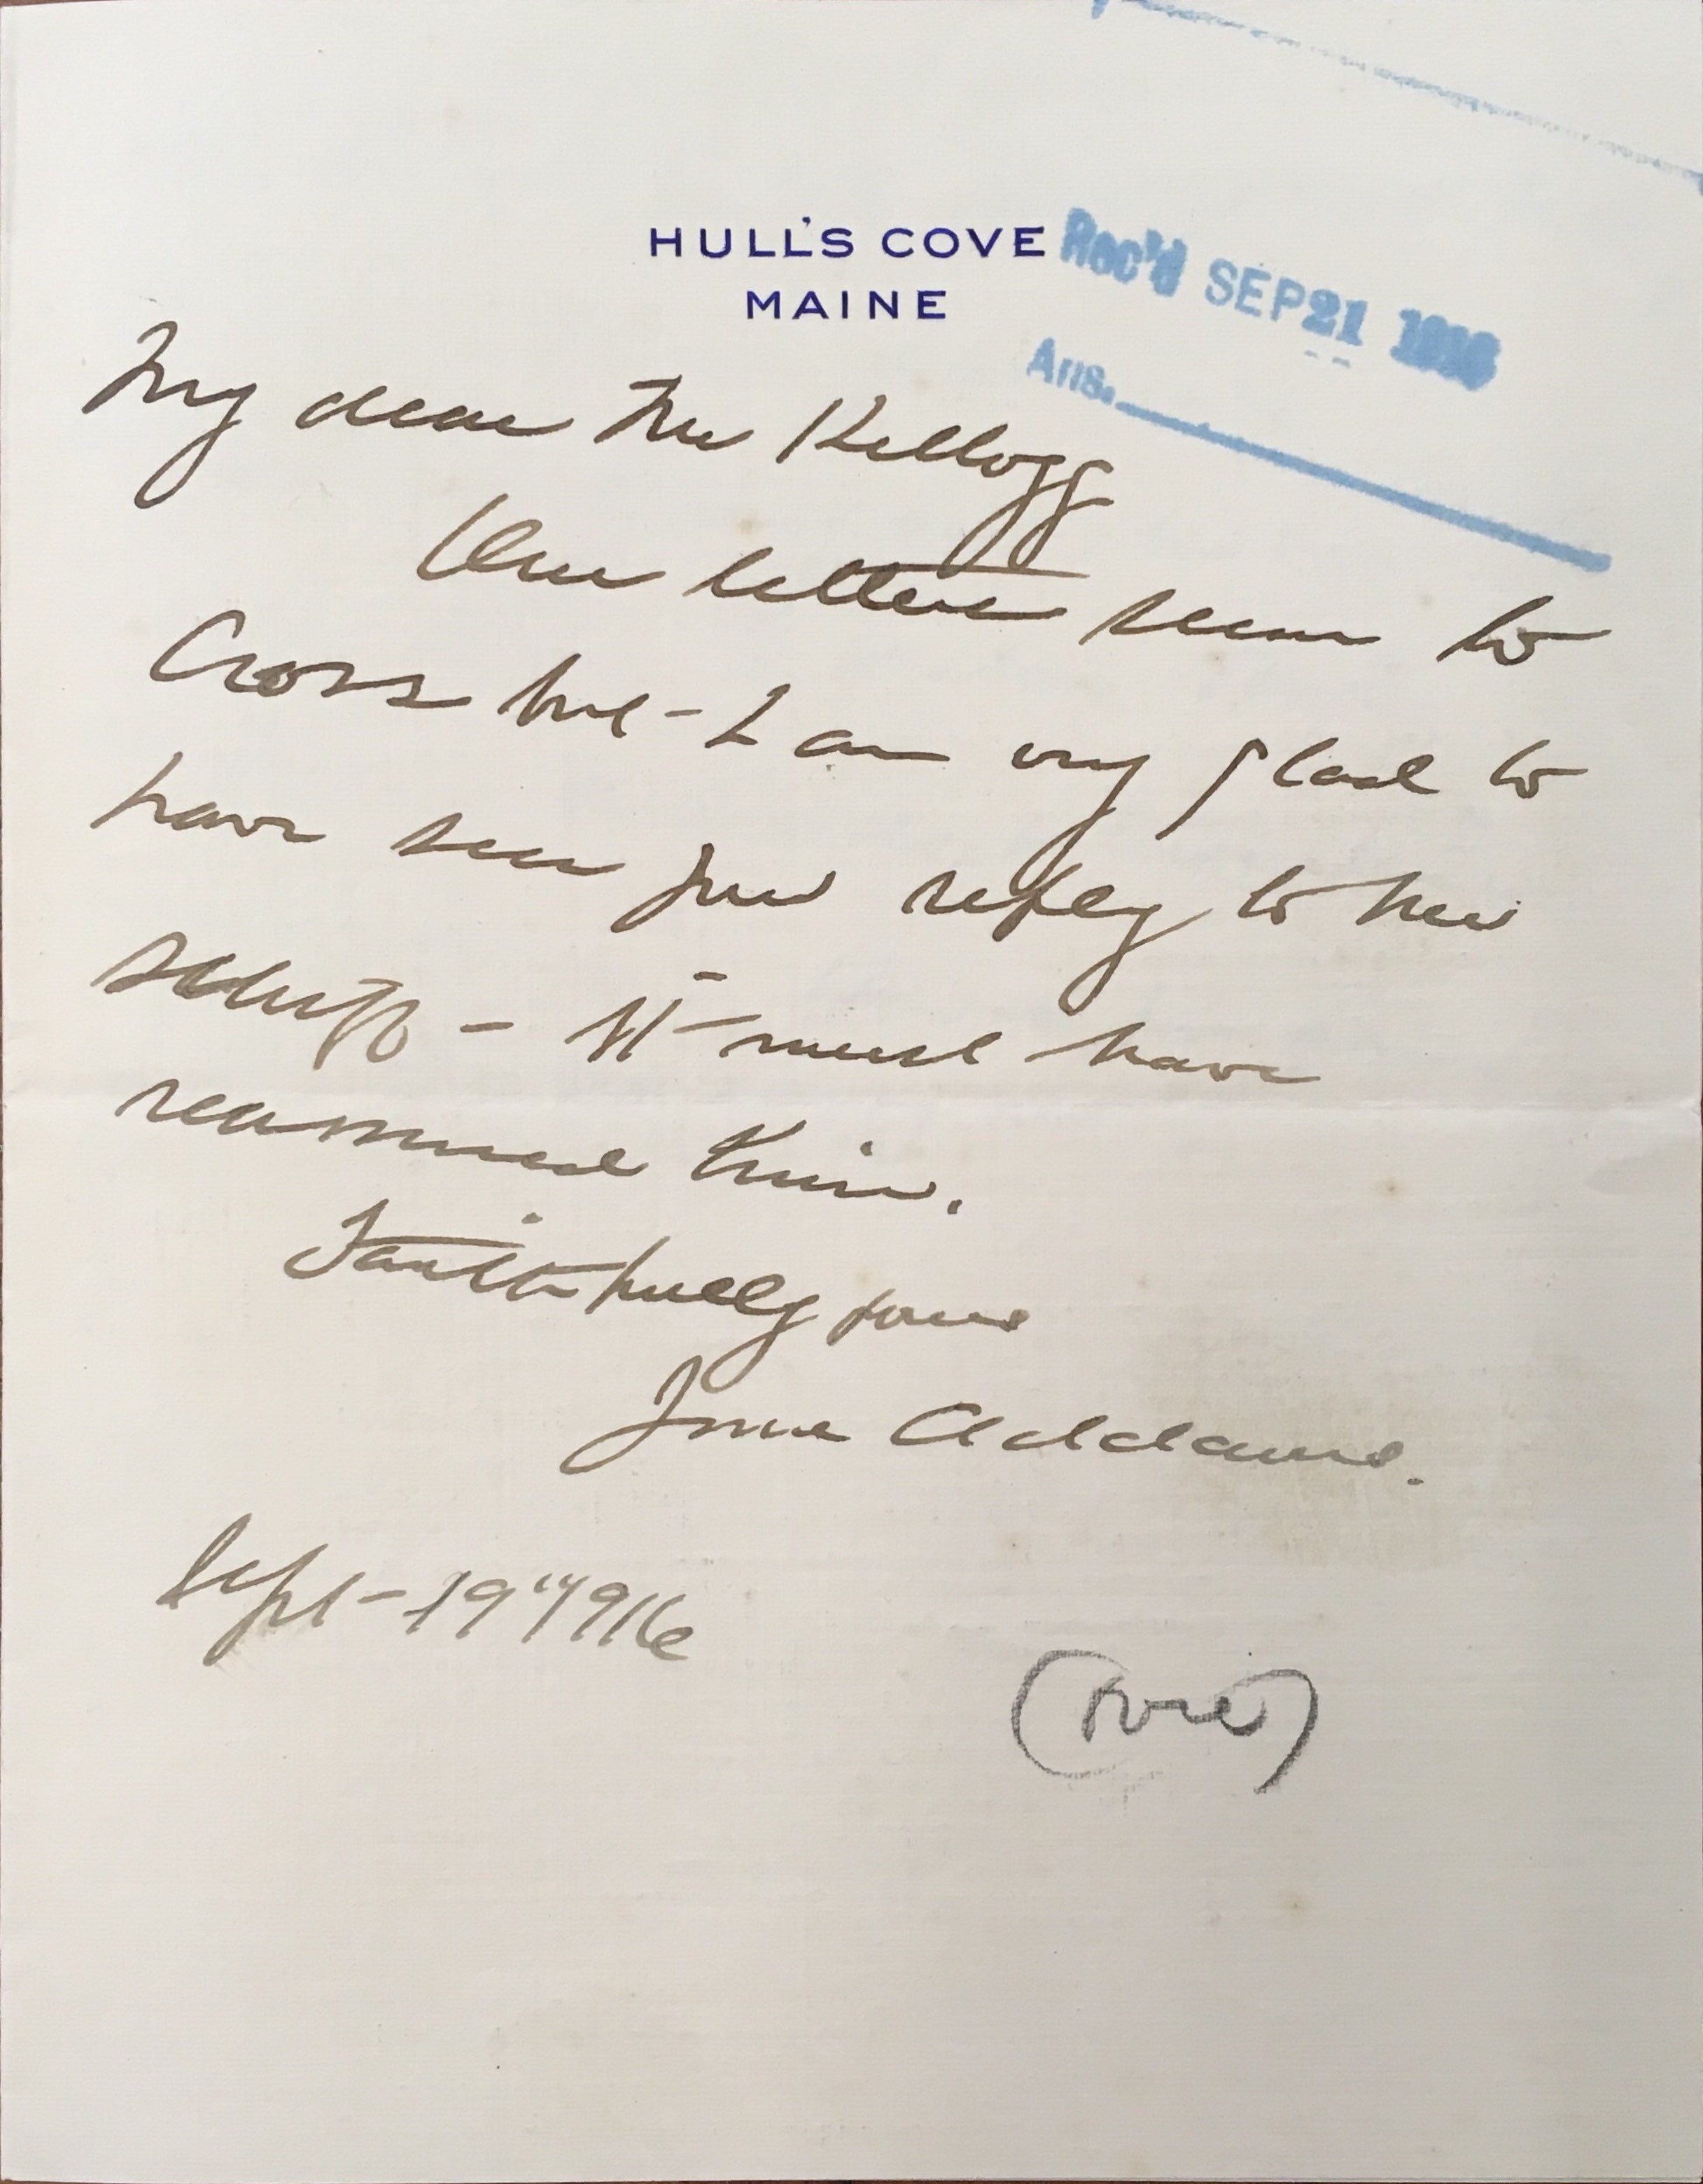 HULL'S COVE
MAINE
Rec'd SEP 21 1916
Ans.
My dear Mr Kellogg
Our letters seem to
Cross but - I am very glad to
have seen your reply to Mr
Schiff - It must have
reassured him.
Faithfully yours
Jane Addams.
Sept - 19" 1916
(over)